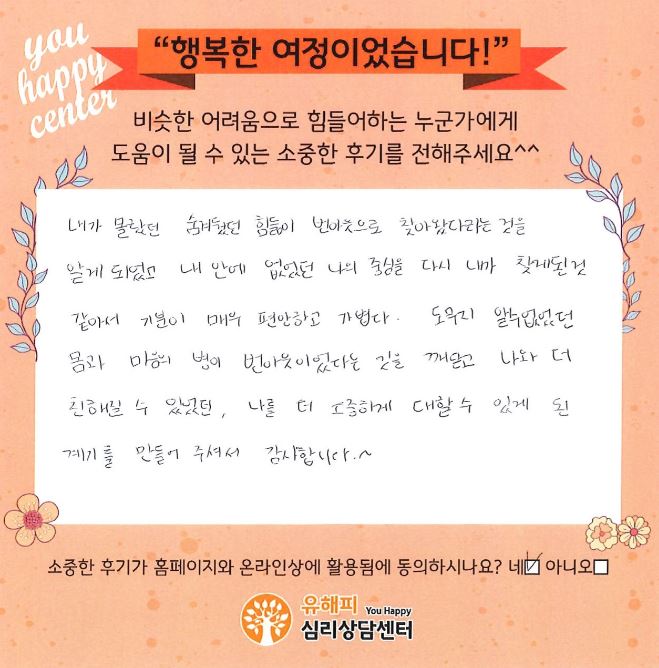 you
happy
center
“행복한 여정이었습니다!”
비슷한 어려움으로 힘들어하는 누군가에게
도움이 될 수 있는 소중한 후기를 전해주세요^^
내가 몰랐던 숨겨뒀던 힘듦이 번아웃으로 찾아왔다라는 것을
알게 되었고 내 안에 없었던 나의 중심을 다시 내가 찾게된것
같아서 기분이 매우 편안하고 가볍다. 도무지 알수없었던
몸과 마음의 병이 번아웃이었다는 것을 깨닫고 나와 더
친해질 수 있었던, 나를 더 소중하게 대할 수 있게 된
계기를 만들어 주셔서 감사합니다.~
소중한 후기가 홈페이지와 온라인상에 활용됨에 동의하시나요? 네☑ 아니오□
유해피 You Happy
심리상담센터